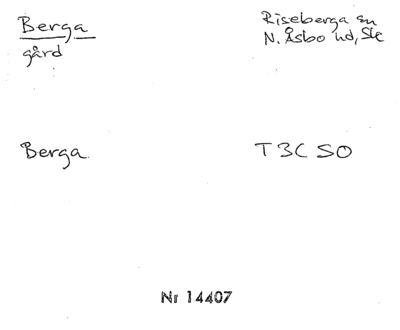 Berga
gård
Riseberga sn
N. Åsbo hd, Ske
Berga
T3C SO
Nr 14407